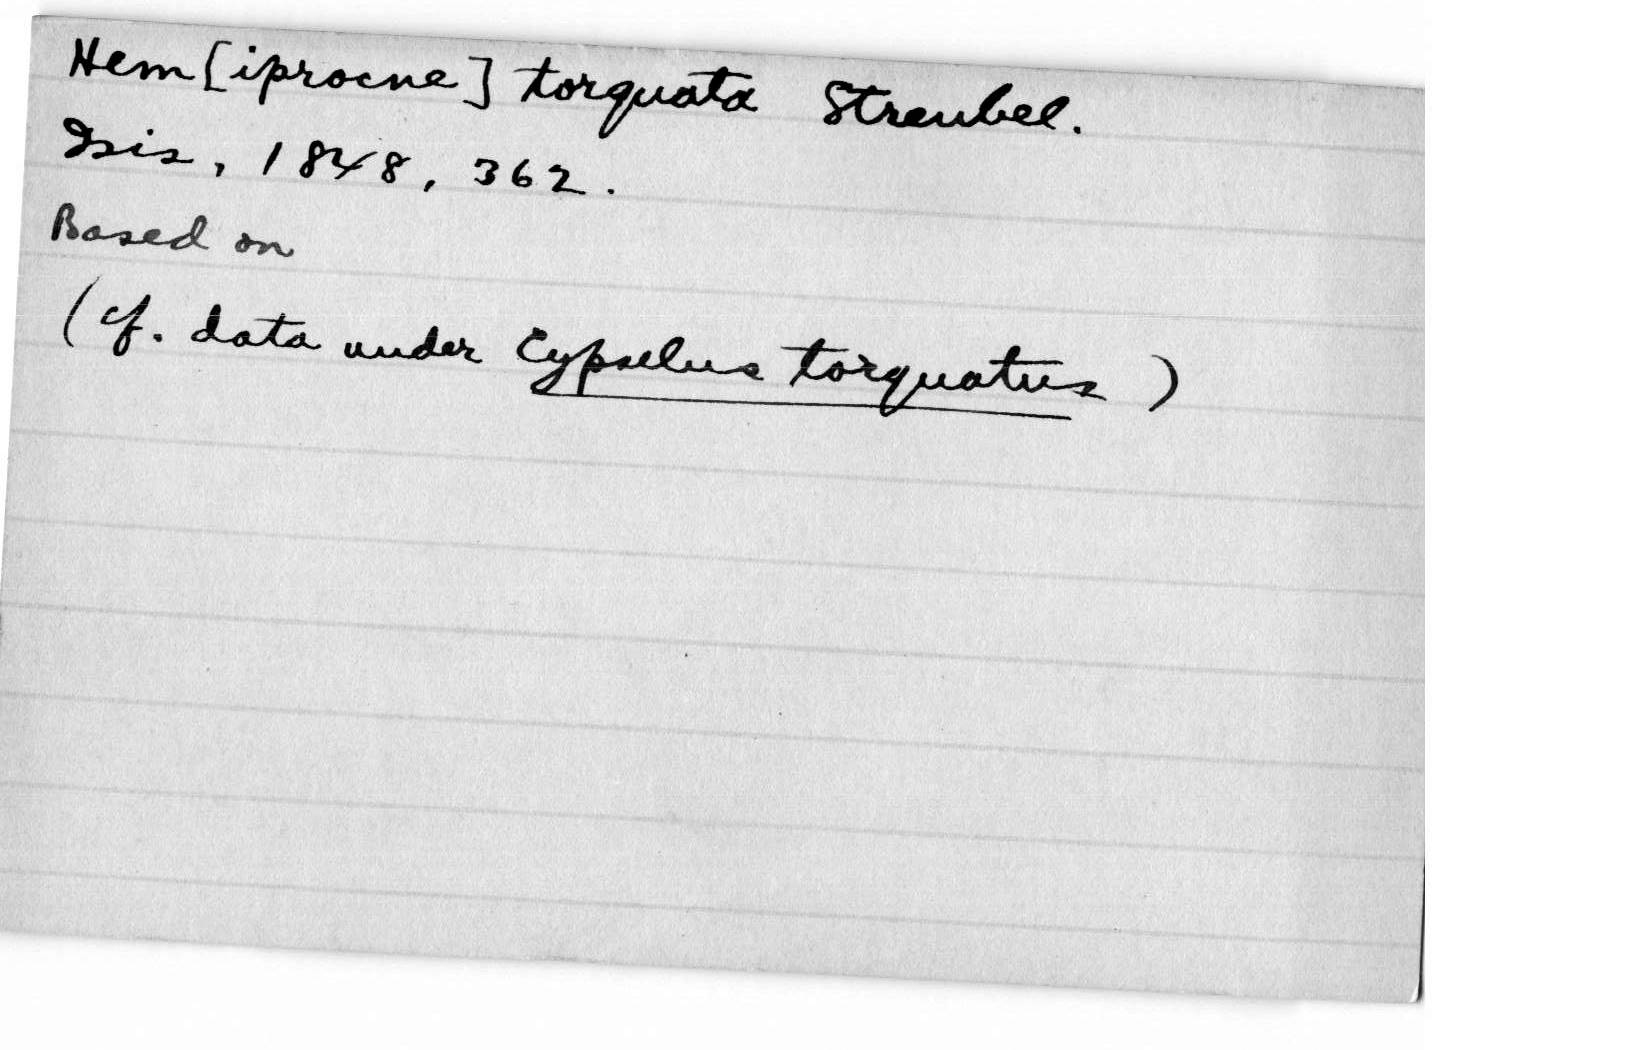 Hem[iprocne] torquata Streubel.
Isis, 1848, 362.
Based on
(cf. data under Cypselus torquatus)